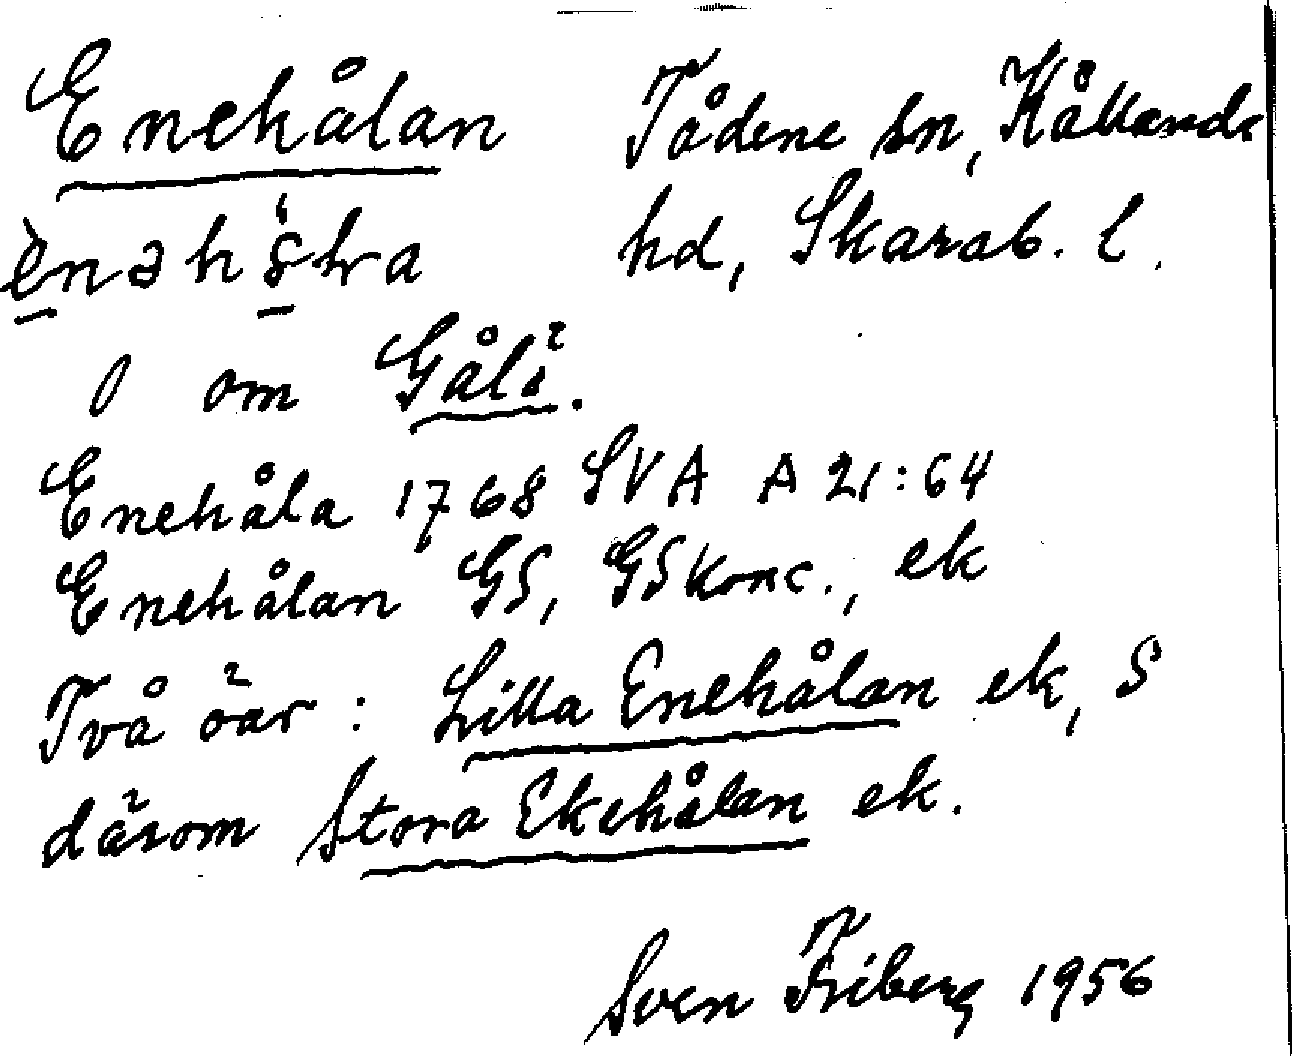 Enehålan Tådene sn, Kållands
enəhålra hd, Skarab. l.
O om Gålö.
Enehåla 1768 SVA A 21:64
Enehålan GS, GSkonc., ek
Två öar: Lilla Enehålan ek, S
därom Stora Ekehålan ek.
Sven Friberg 1956